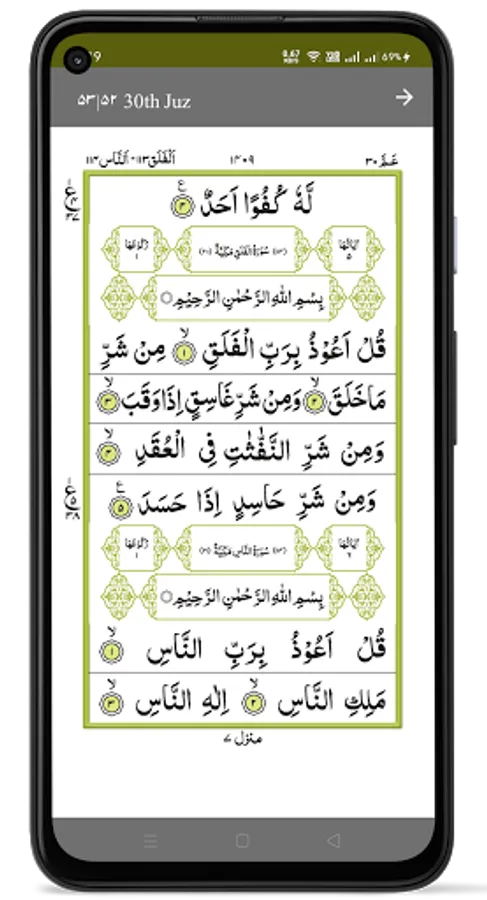 9 0.67 KB/S 69%
۵۳|۵۲ 30th Juz
اَلْفَلَق ۱۱۳ - اَلنَّاس ۱۱۴ ۱۴۰۹ عَمَّ ۳۰
لَّهٗ كُفُوًا اَحَدٌ ۴ ع
اٰيَاتُهَا ۵ سُوْرَةُ الْفَلَقِ مَكِّيَّةٌ (۲۰) رُكُوْعُهَا ۱
بِسْمِ اللّٰهِ الرَّحْمٰنِ الرَّحِيْمِ
قُلْ اَعُوْذُ بِرَبِّ الْفَلَقِ ۱ مِنْ شَرِّ
مَا خَلَقَ ۲ وَمِنْ شَرِّ غَاسِقٍ اِذَا وَقَبَ ۳
وَمِنْ شَرِّ النَّفّٰثٰتِ فِى الْعُقَدِ ۴
وَمِنْ شَرِّ حَاسِدٍ اِذَا حَسَدَ ۵ ع
اٰيَاتُهَا ۶ سُوْرَةُ النَّاسِ مَكِّيَّةٌ (۲۱) رُكُوْعُهَا ۱
بِسْمِ اللّٰهِ الرَّحْمٰنِ الرَّحِيْمِ
قُلْ اَعُوْذُ بِرَبِّ النَّاسِ ۱
مَلِكِ النَّاسِ ۲ اِلٰهِ النَّاسِ ۳
منزل ۷